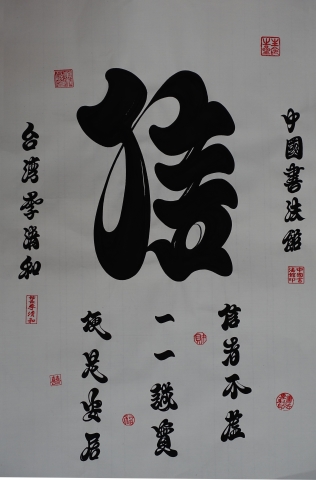 中國書法館
信
信者不虛
一一誠實
便是安居
台灣李清和